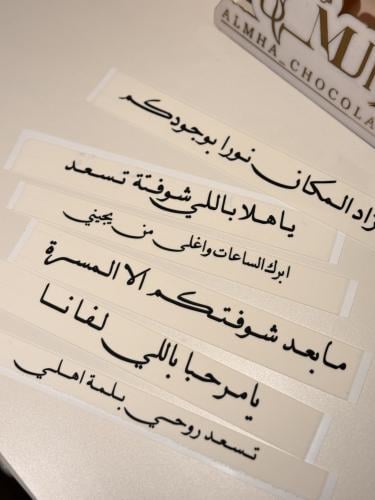 ALMHA_CHOCOLA
زاد المكان نورا بوجودكم
ياهلا باللي شوفتة تسعد
ابرك الساعات واغلى من يجيني
مابعد شوفتكم الا المسرة
يامرحبا باللي لفانا
تسعد روحي بلمة اهلي